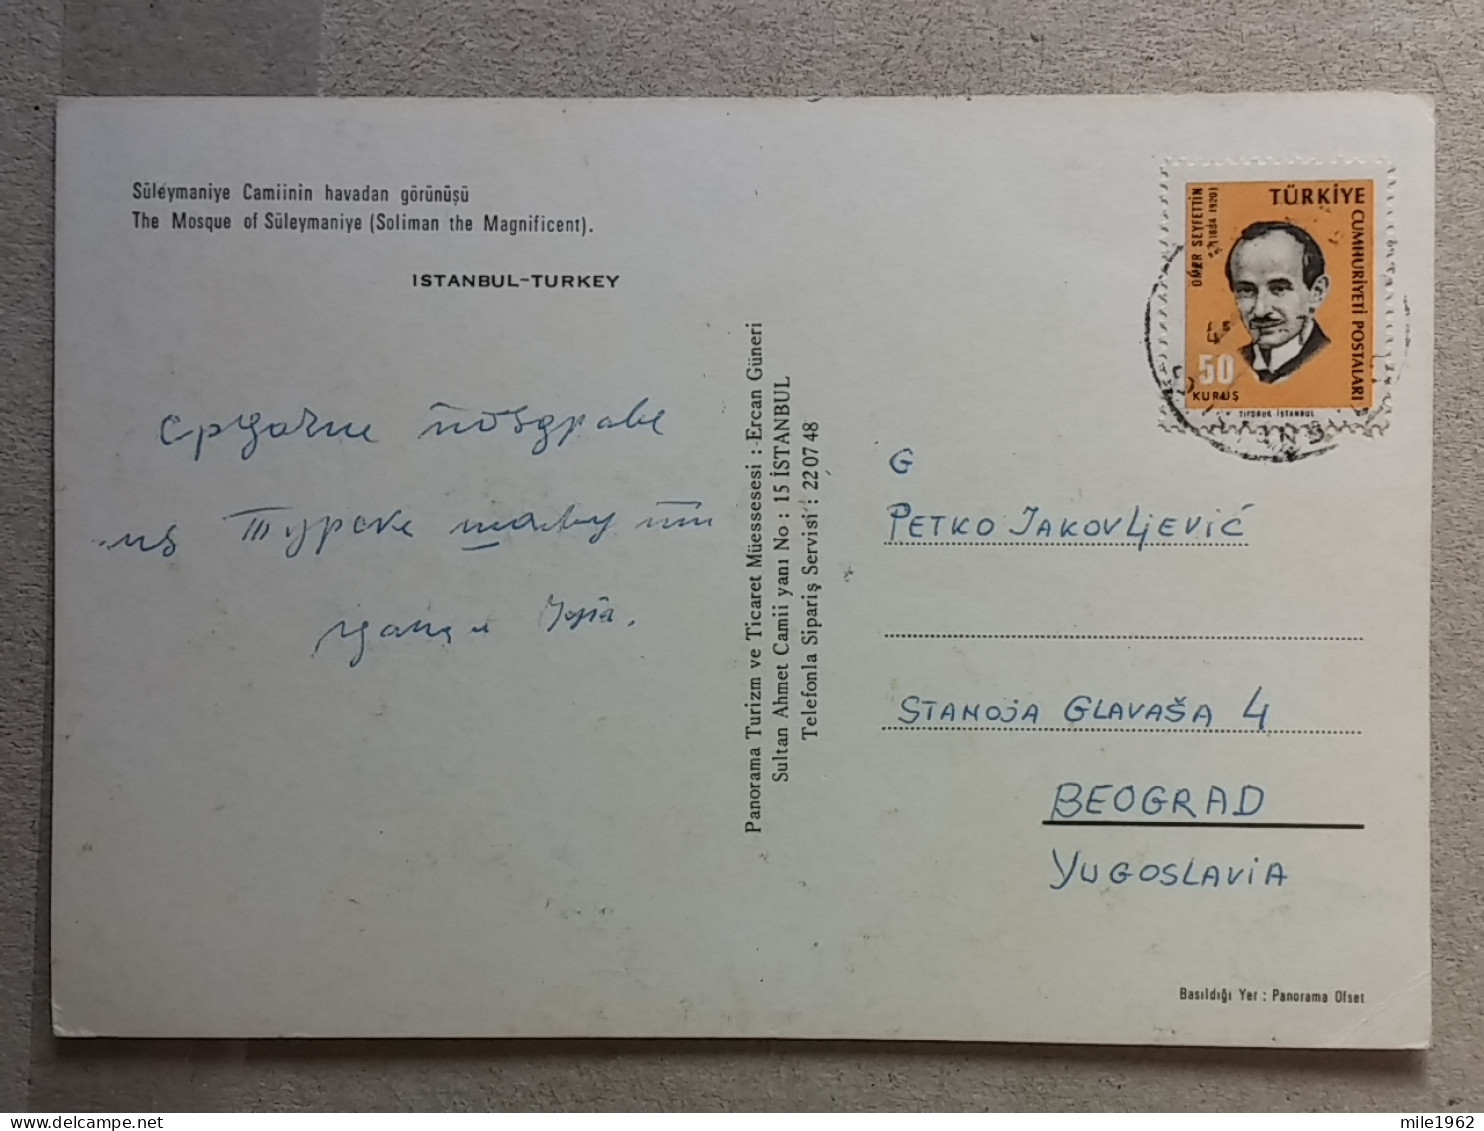 Süleymaniye Camiinin havadan görünüşü
The Mosque of Süleymaniye (Soliman the Magnificent).
ISTANBUL-TURKEY
Срдачне поздраве
из Турске шаљу
Panorama Turizm ve Ticaret Müessesesi : Ercan Güneri
Sultan Ahmet Camii yanı No : 15 İSTANBUL
Telefonla Sipariş Servisi : 22 07 48
TÜRKİYE
CUMHURİYETİ POSTALARI
ÖMER SEYFETTİN
(1884-1920)
50
KURUŞ
TİFDRUK İSTANBUL
G
PETKO JAKOVLJEVIĆ
STANOJA GLAVAŠA 4
BEOGRAD
YUGOSLAVIA
Basıldığı Yer : Panorama Ofset
mile1962